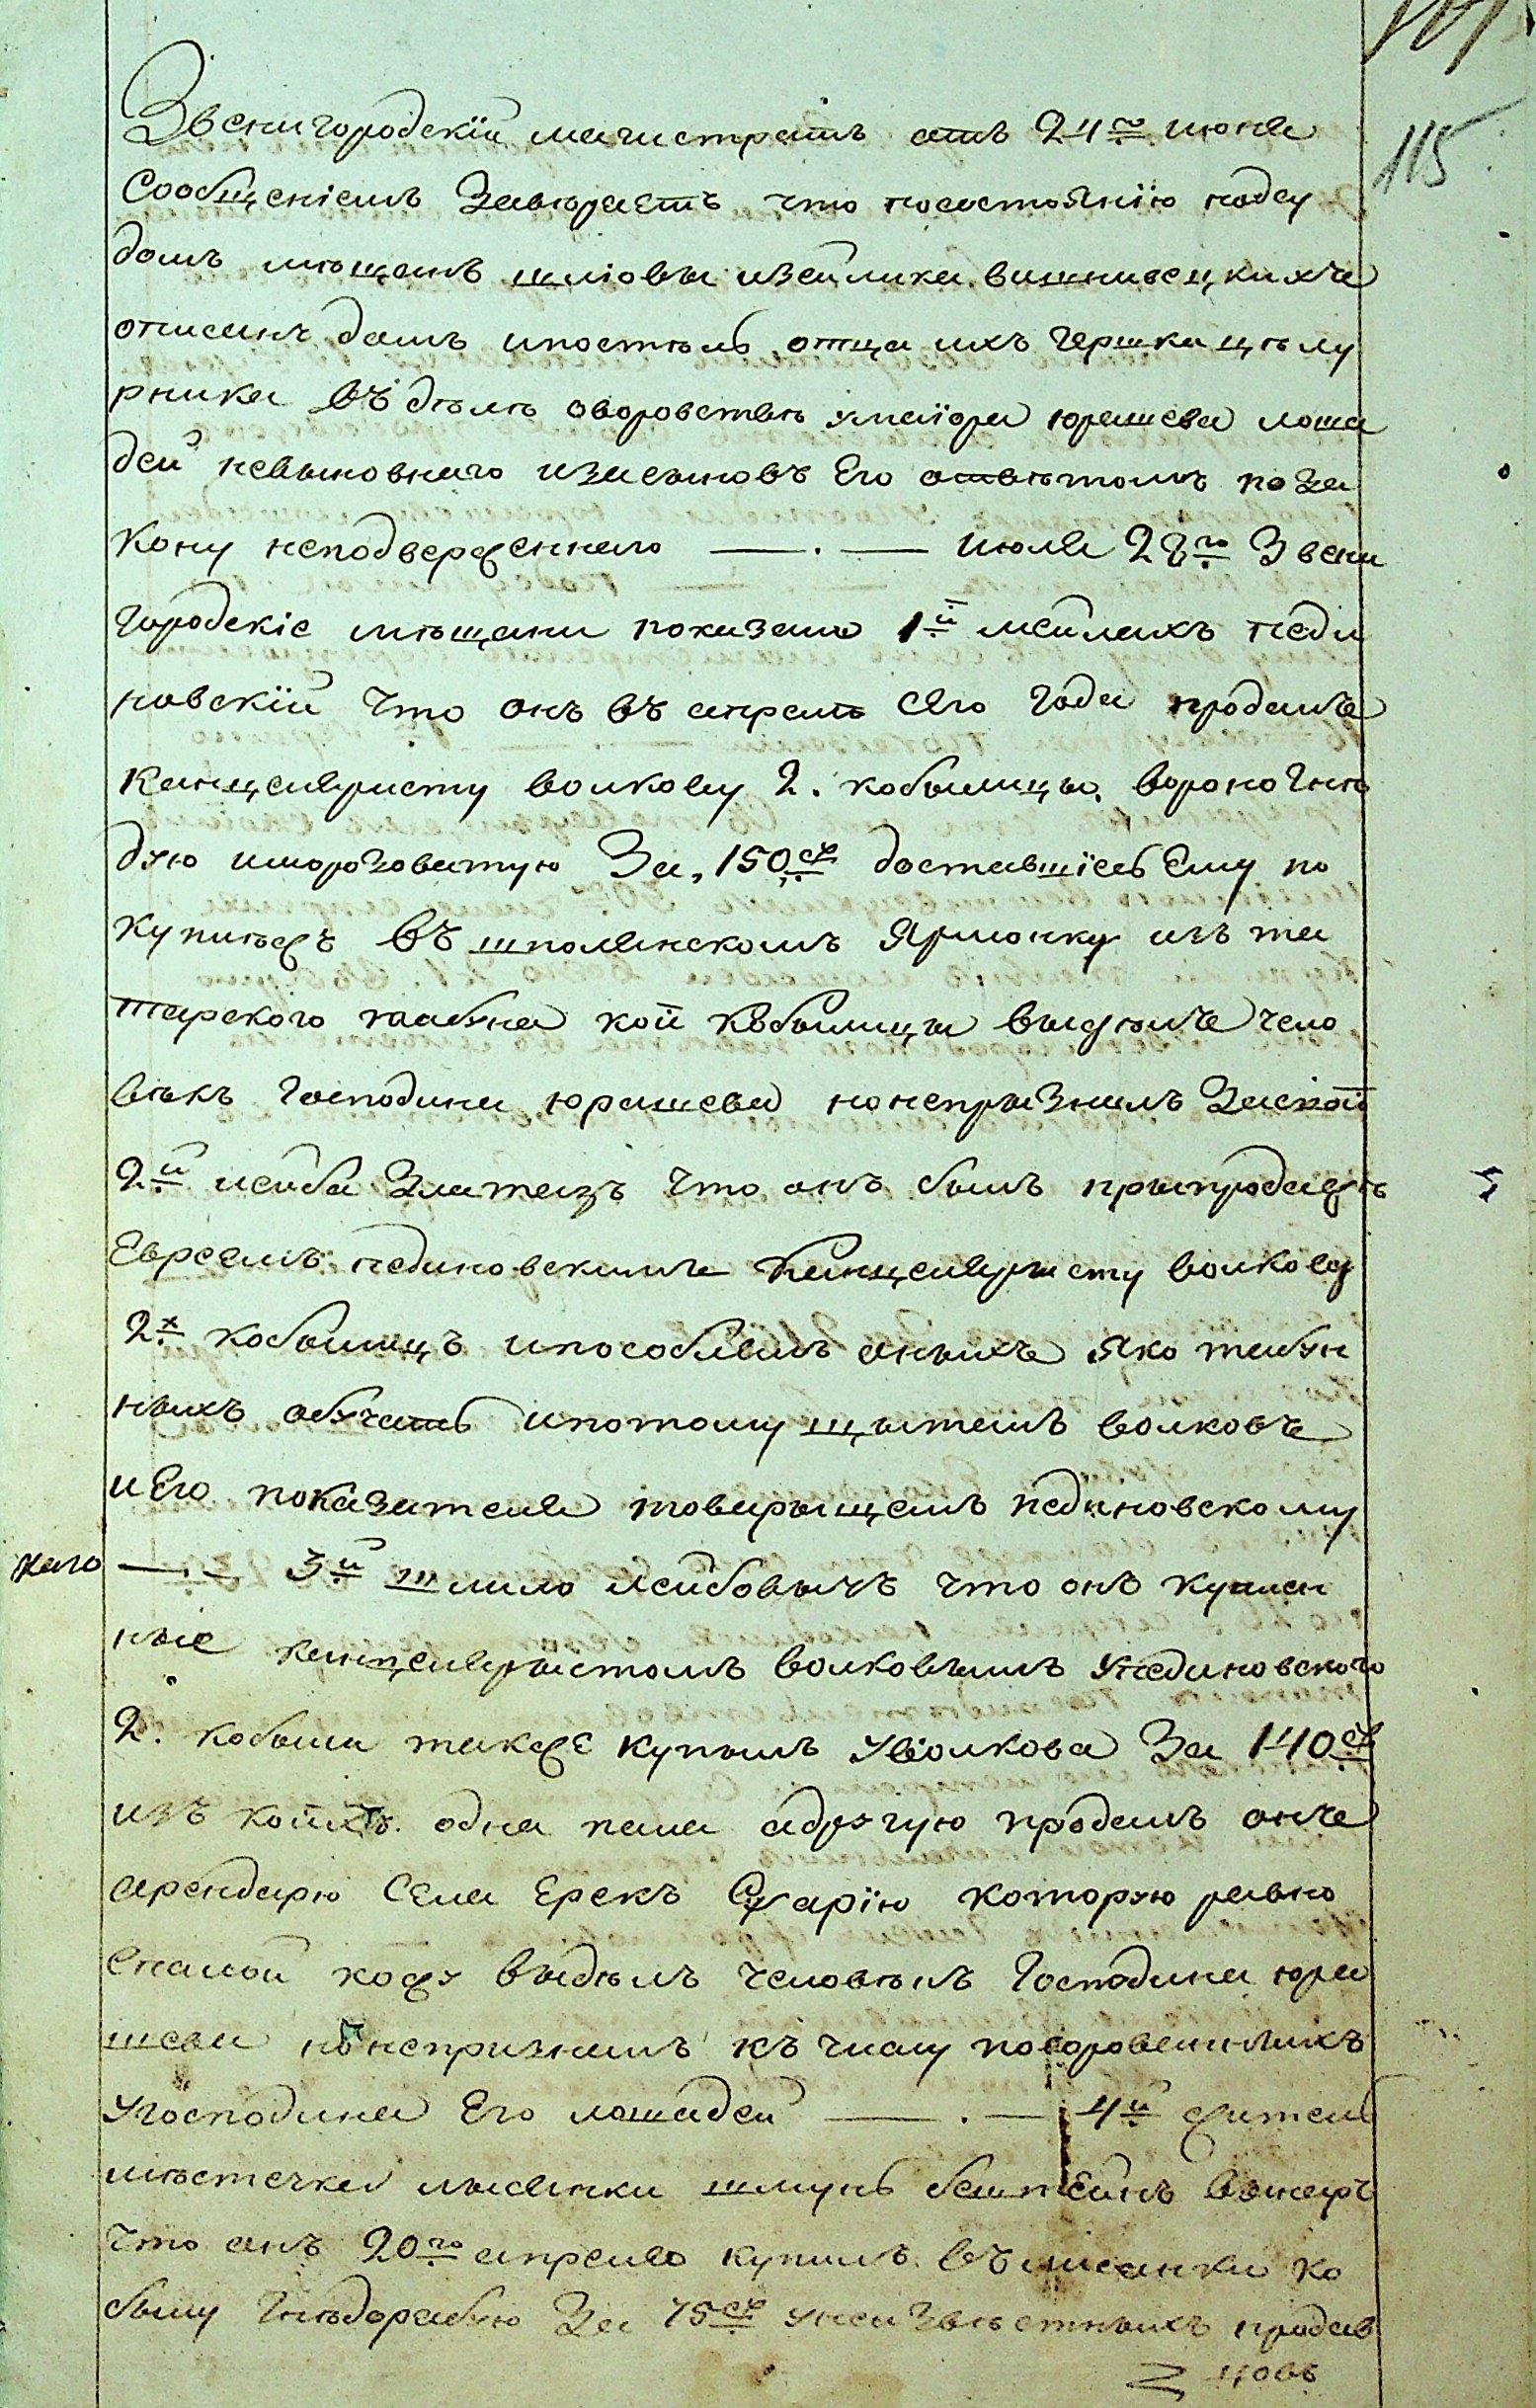 115
Звенигородскій магистратъ отъ 24го июня
Сообщеніемъ Заверяетъ что посостоянію подсу
домъ мѣщанъ шліовы изейлика вишнивецкихъ
описанъ домъ ипостѣль отца ихъ гершка цѣлу
рника въ дѣлѣ оворовствѣ умаіора юрашева лоша
дей невыновнаго изасыновъ Его ответомъ поза
кону неподверженнаго —.— июля 28го Звени
городскіе мѣщани показали 1й мейлахъ неди
новскій что онъ въ апрелѣ сего года продалъ
Канцеляристу волкову 2. кобылицы. вороногнѣ
дую иморозоватую За 150ср доставшіесь Ему по
купкѣжъ въ шполянскомъ ярмонку изъ та
тарского табуна кои кобылицы выделъ чело
вѣкъ господина юрашева нонепризналъ Заской
2й лейба Златеизъ что онъ былъ припродажѣ
Евреемъ недыновскимъ Канцеляристу волкову
2х кобылицъ ипособлялъ оныхъ яко табун
ныхъ обучать ипотому щытаетъ волковъ
иЕго показателя товарыщемъ недыновскому
—.— 3й шлиома лейбовычъ что онъ куплен
ные канцеляристомъ волковымъ унедыновского
2. кобылы также купылъ уволкова За 140ср
изъ коихъ одна пала адругую продалъ онъ
арендарю Села Ерекъ которую равно
снятой кожу выделъ человѣкъ Господина юра
шева нонепризналъ къ числу поворованныхъ
угосподина Его лошадей —.— 4й житель
мѣстечка лысянки шмунь
что онъ 20го апреля купилъ въ лисянки ко
былу гнѣдорабую За 75ср унеизвестныхъ продав
цовъ